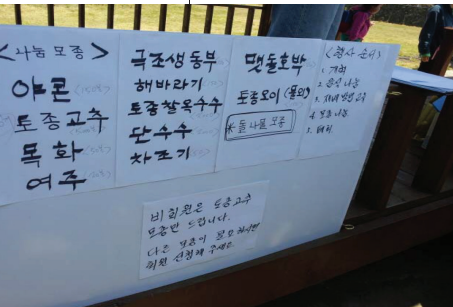 <나눔 모종>
야콘
토종고추
목화
여주
극조생동부
해바라기
토종찰옥수수
단수수
차조기
맷돌호박
토종오이 (물외)
*돌나물 모종
<행사 순서>
1. 개회
2.
3.
4. 모종 나눔
5. 폐회
비회원은 토종고추
모종만 드립니다.
다른 모종이 필요하시면
회원 신청해 주세요.